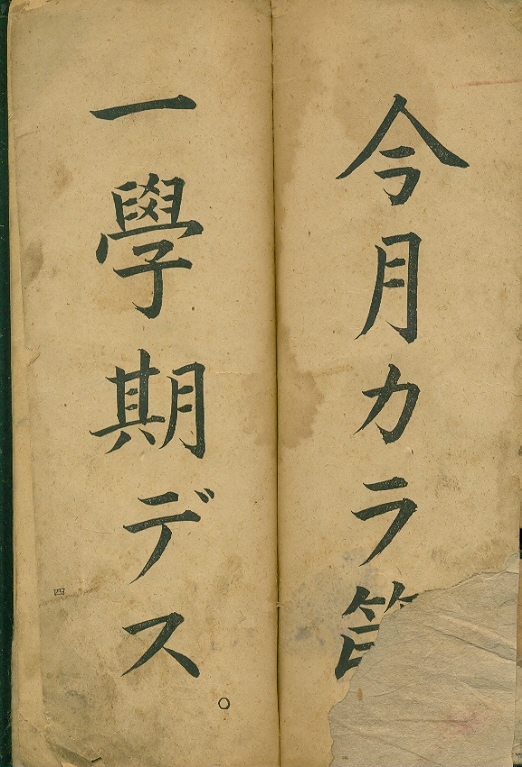 今月カラ
一學期デス。
四